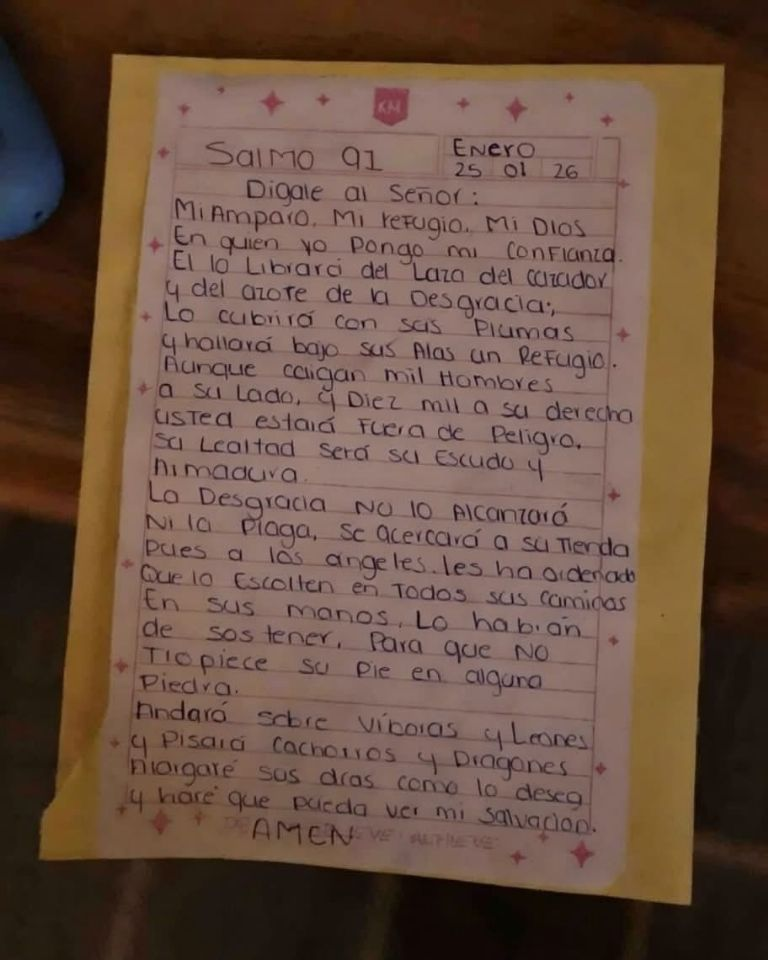 KM
Salmo 91
Enero
25 01 26
Digale al Señor:
Mi Amparo, Mi refugio, Mi Dios
En quien yo pongo mi confianza.
El lo Librará del Lazo del cazador
y del azote de la Desgracia:,
Lo cubrirá con sus Plumas
y hallará bajo sus Alas un Refugio.
Aunque caigan mil Hombres
a su Lado, y Diez mil a su derecha
usted estará Fuera de Peligro.
su Lealtad será su Escudo y
Armadura.
La Desgracia No lo Alcanzará
Ni la Plaga, se acercará a su Tienda
pues a los angeles. les ha ordenado
Que lo Escolten en Todos sus caminos
En sus manos, Lo habrán
de sostener, Para que NO
Tropiece su Pie en alguna
Piedra.
Andará sobre Víboras y Leones
y Pisará Cachorros y Dragones
Alargaré sus dias como lo desea
y haré que pueda ver mi salvación.
AMEN